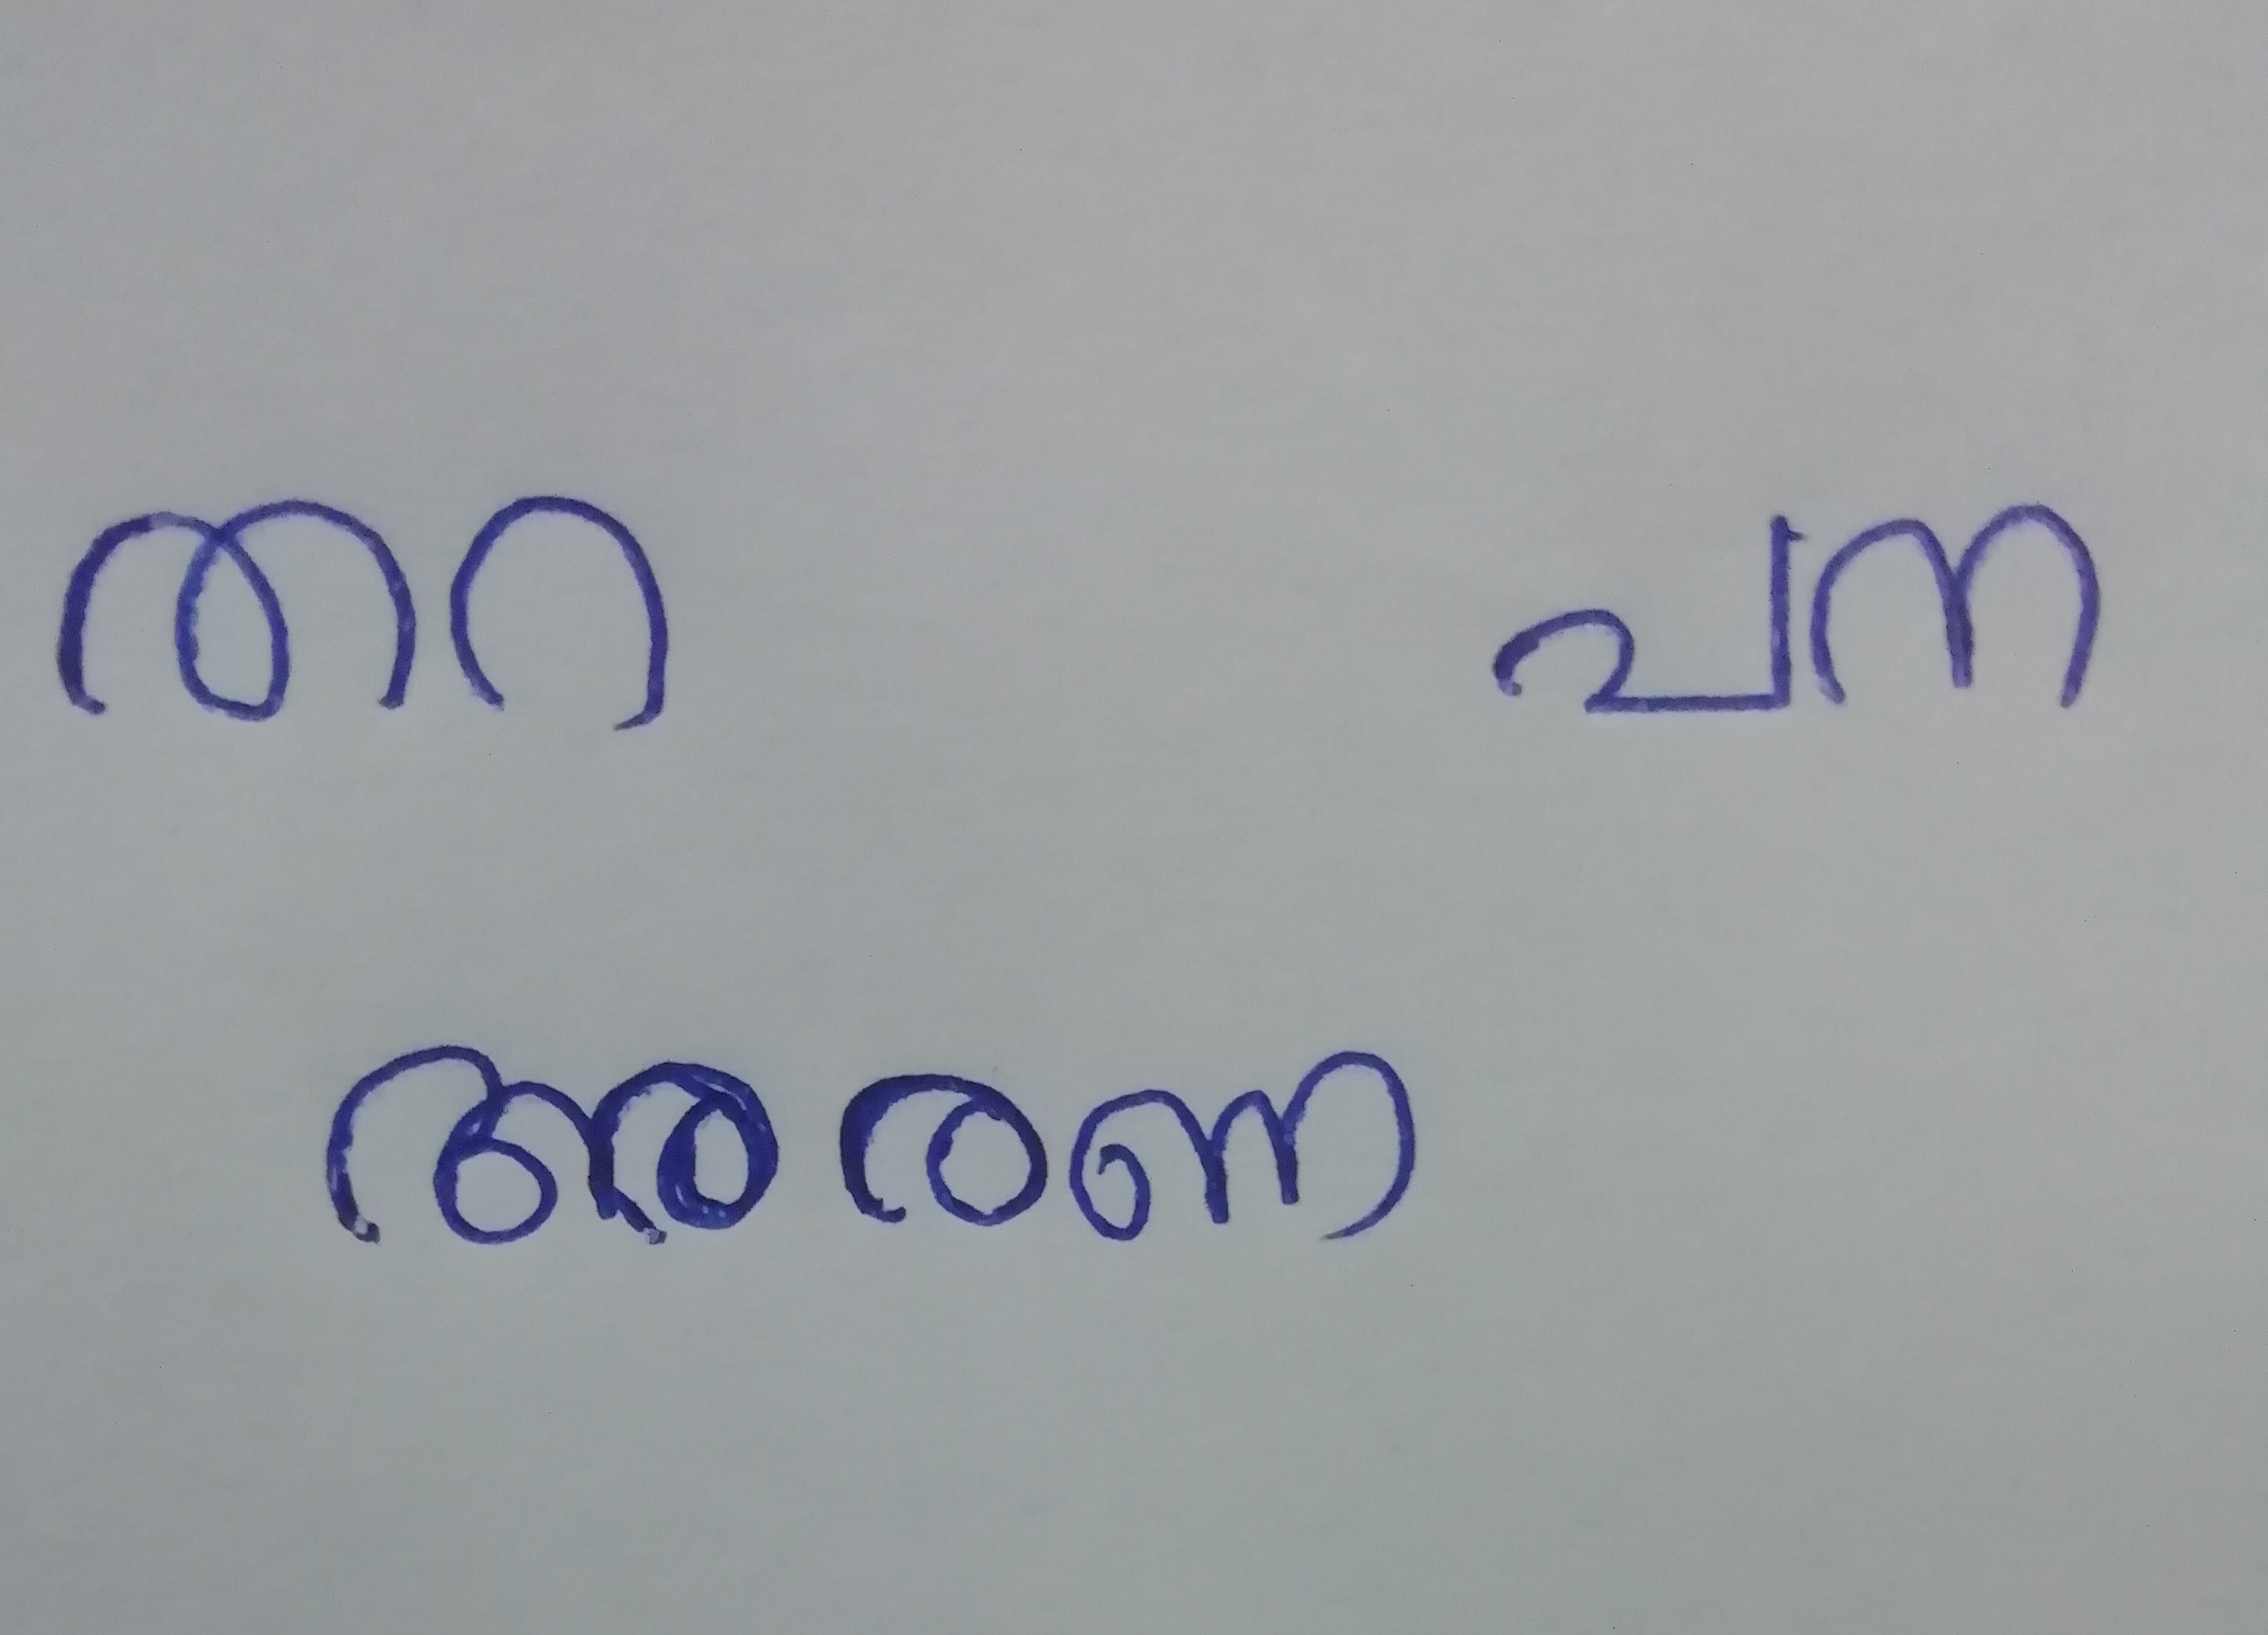 തറ പന
അരണ